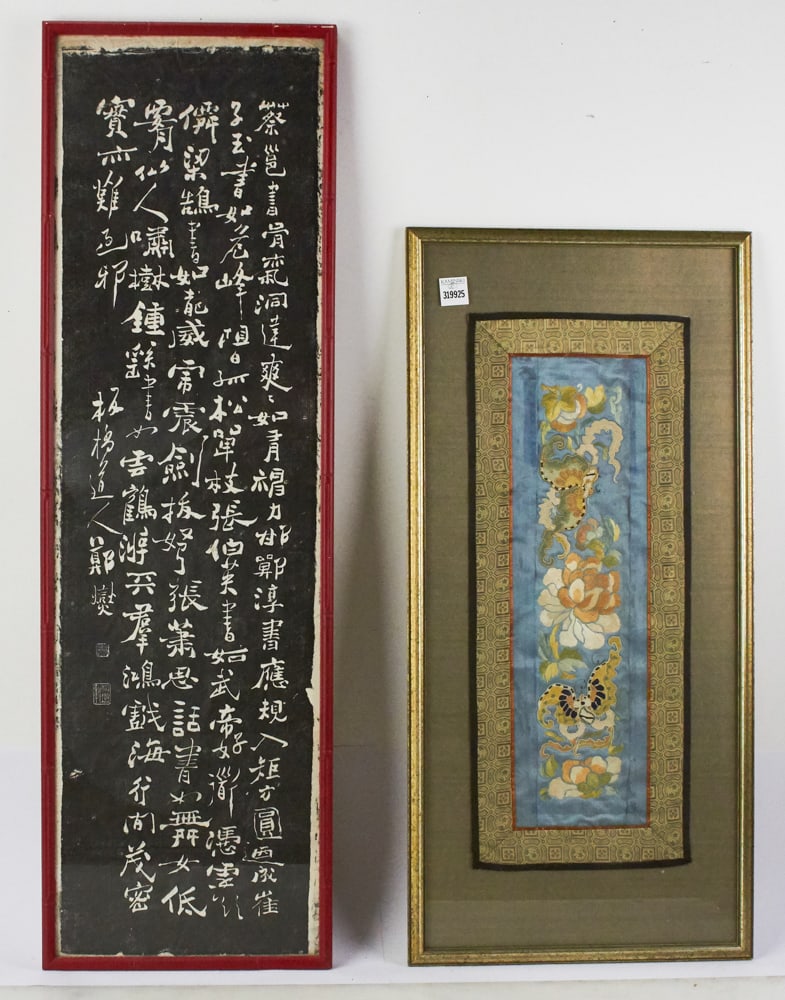 蔡邕書骨氣洞達爽〻如有神力邯鄲淳書應規入矩方圓迺成崔
子玉書如危峰阻日孤松單枝張伯英書如武帝好道憑虛欲
僊梁鵠書如龍威虎震劍拔弩張蕭思話書如舞女低
腰仙人嘯樹鍾繇書如雲鶴游天羣鴻戲海行間茂密
實亦難過耶
板橋道人鄭燮
KAMINSKI
319925